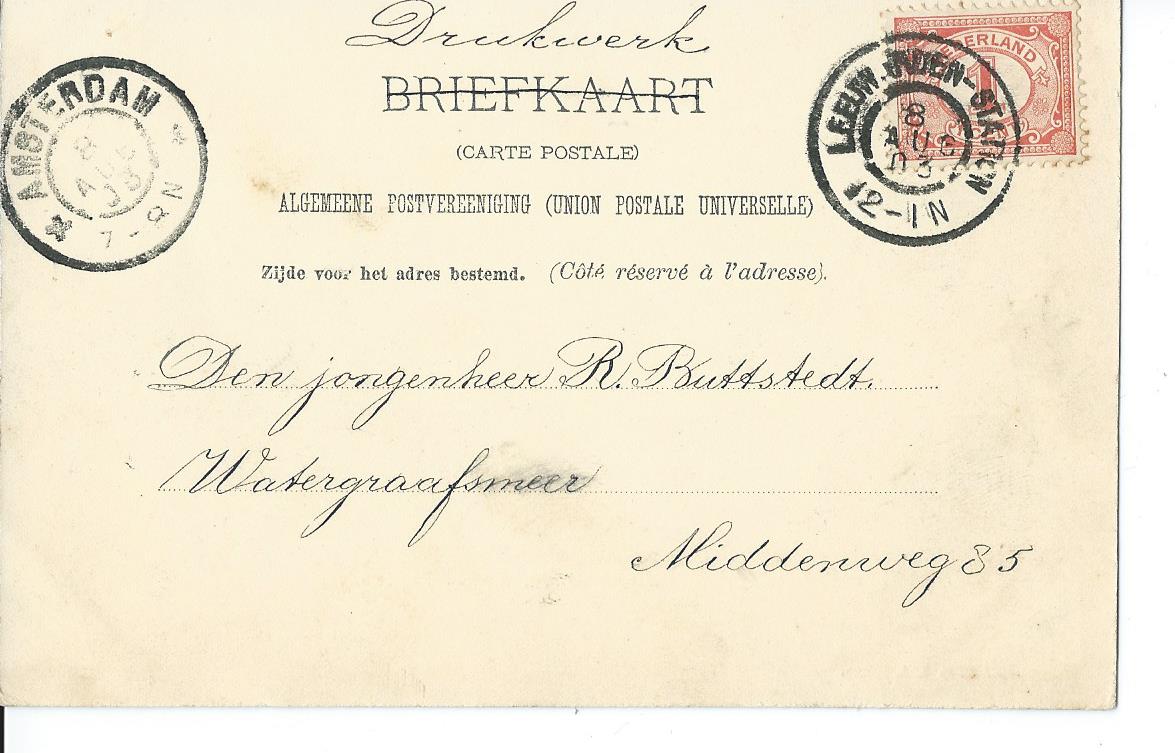 Drukwerk
BRIEFKAART
(CARTE POSTALE)
ALGEMEENE POSTVEREENIGING (UNION POSTALE UNIVERSELLE)
Zijde voor het adres bestemd. (Côté réservé à l'adresse).
AMSTERDAM
8
AUG
03
7-8N
NEDERLAND
1
LEEUWARDEN-STATION
8
AUG
03
12-1N
Den jongenheer R. Buttstedt.
Watergraafsmeer
Middenweg 85